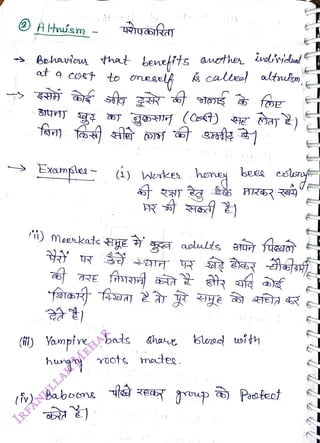 ② Altruism - परोपकारिता
→ Behaviour that benefits another individual
at a cost to oneself is called altruism.
→ इसमें कोई जीव दूसरे की भलाई के लिए
अपना खुद का नुकसान (cost) सह लेता है।
बिना किसी सीधे लाभ की उम्मीद के।
→ Examples - (i) Worker honey bees colony
की रक्षा हेतु डंक मारकर स्वयं
मर भी सकती है।
(ii) Meerkats समूह में कुछ adults अपने पिछले
पैरों पर ऊँचे स्थान पर खड़े होकर चौकीदारी
की तरह निगरानी करते हैं और यदि कोई
शिकारी दिखता है तो पूरे समूह को सचेत कर
देते हैं।
(iii) Vampire bats share blood with
hungry roots mates.
(iv) Baboons पीछे रहकर group को Protect
करते हैं।
IRFANULLAH MEHAR